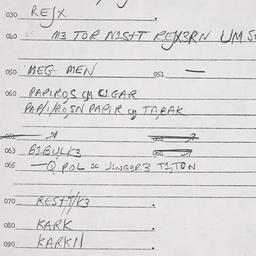 030 REJX
040 M3 TOR N1S+T REJX3RN UM
050 MEG MEN 051 —
060 PAPIROS CIGAR
PAP/I/ROSN PAPIR TABAK
061 062
063 B1BULK3
065 —Q POL JINGER3 T1TON
070 REST/T/K3
080 KARK
090 KARKN